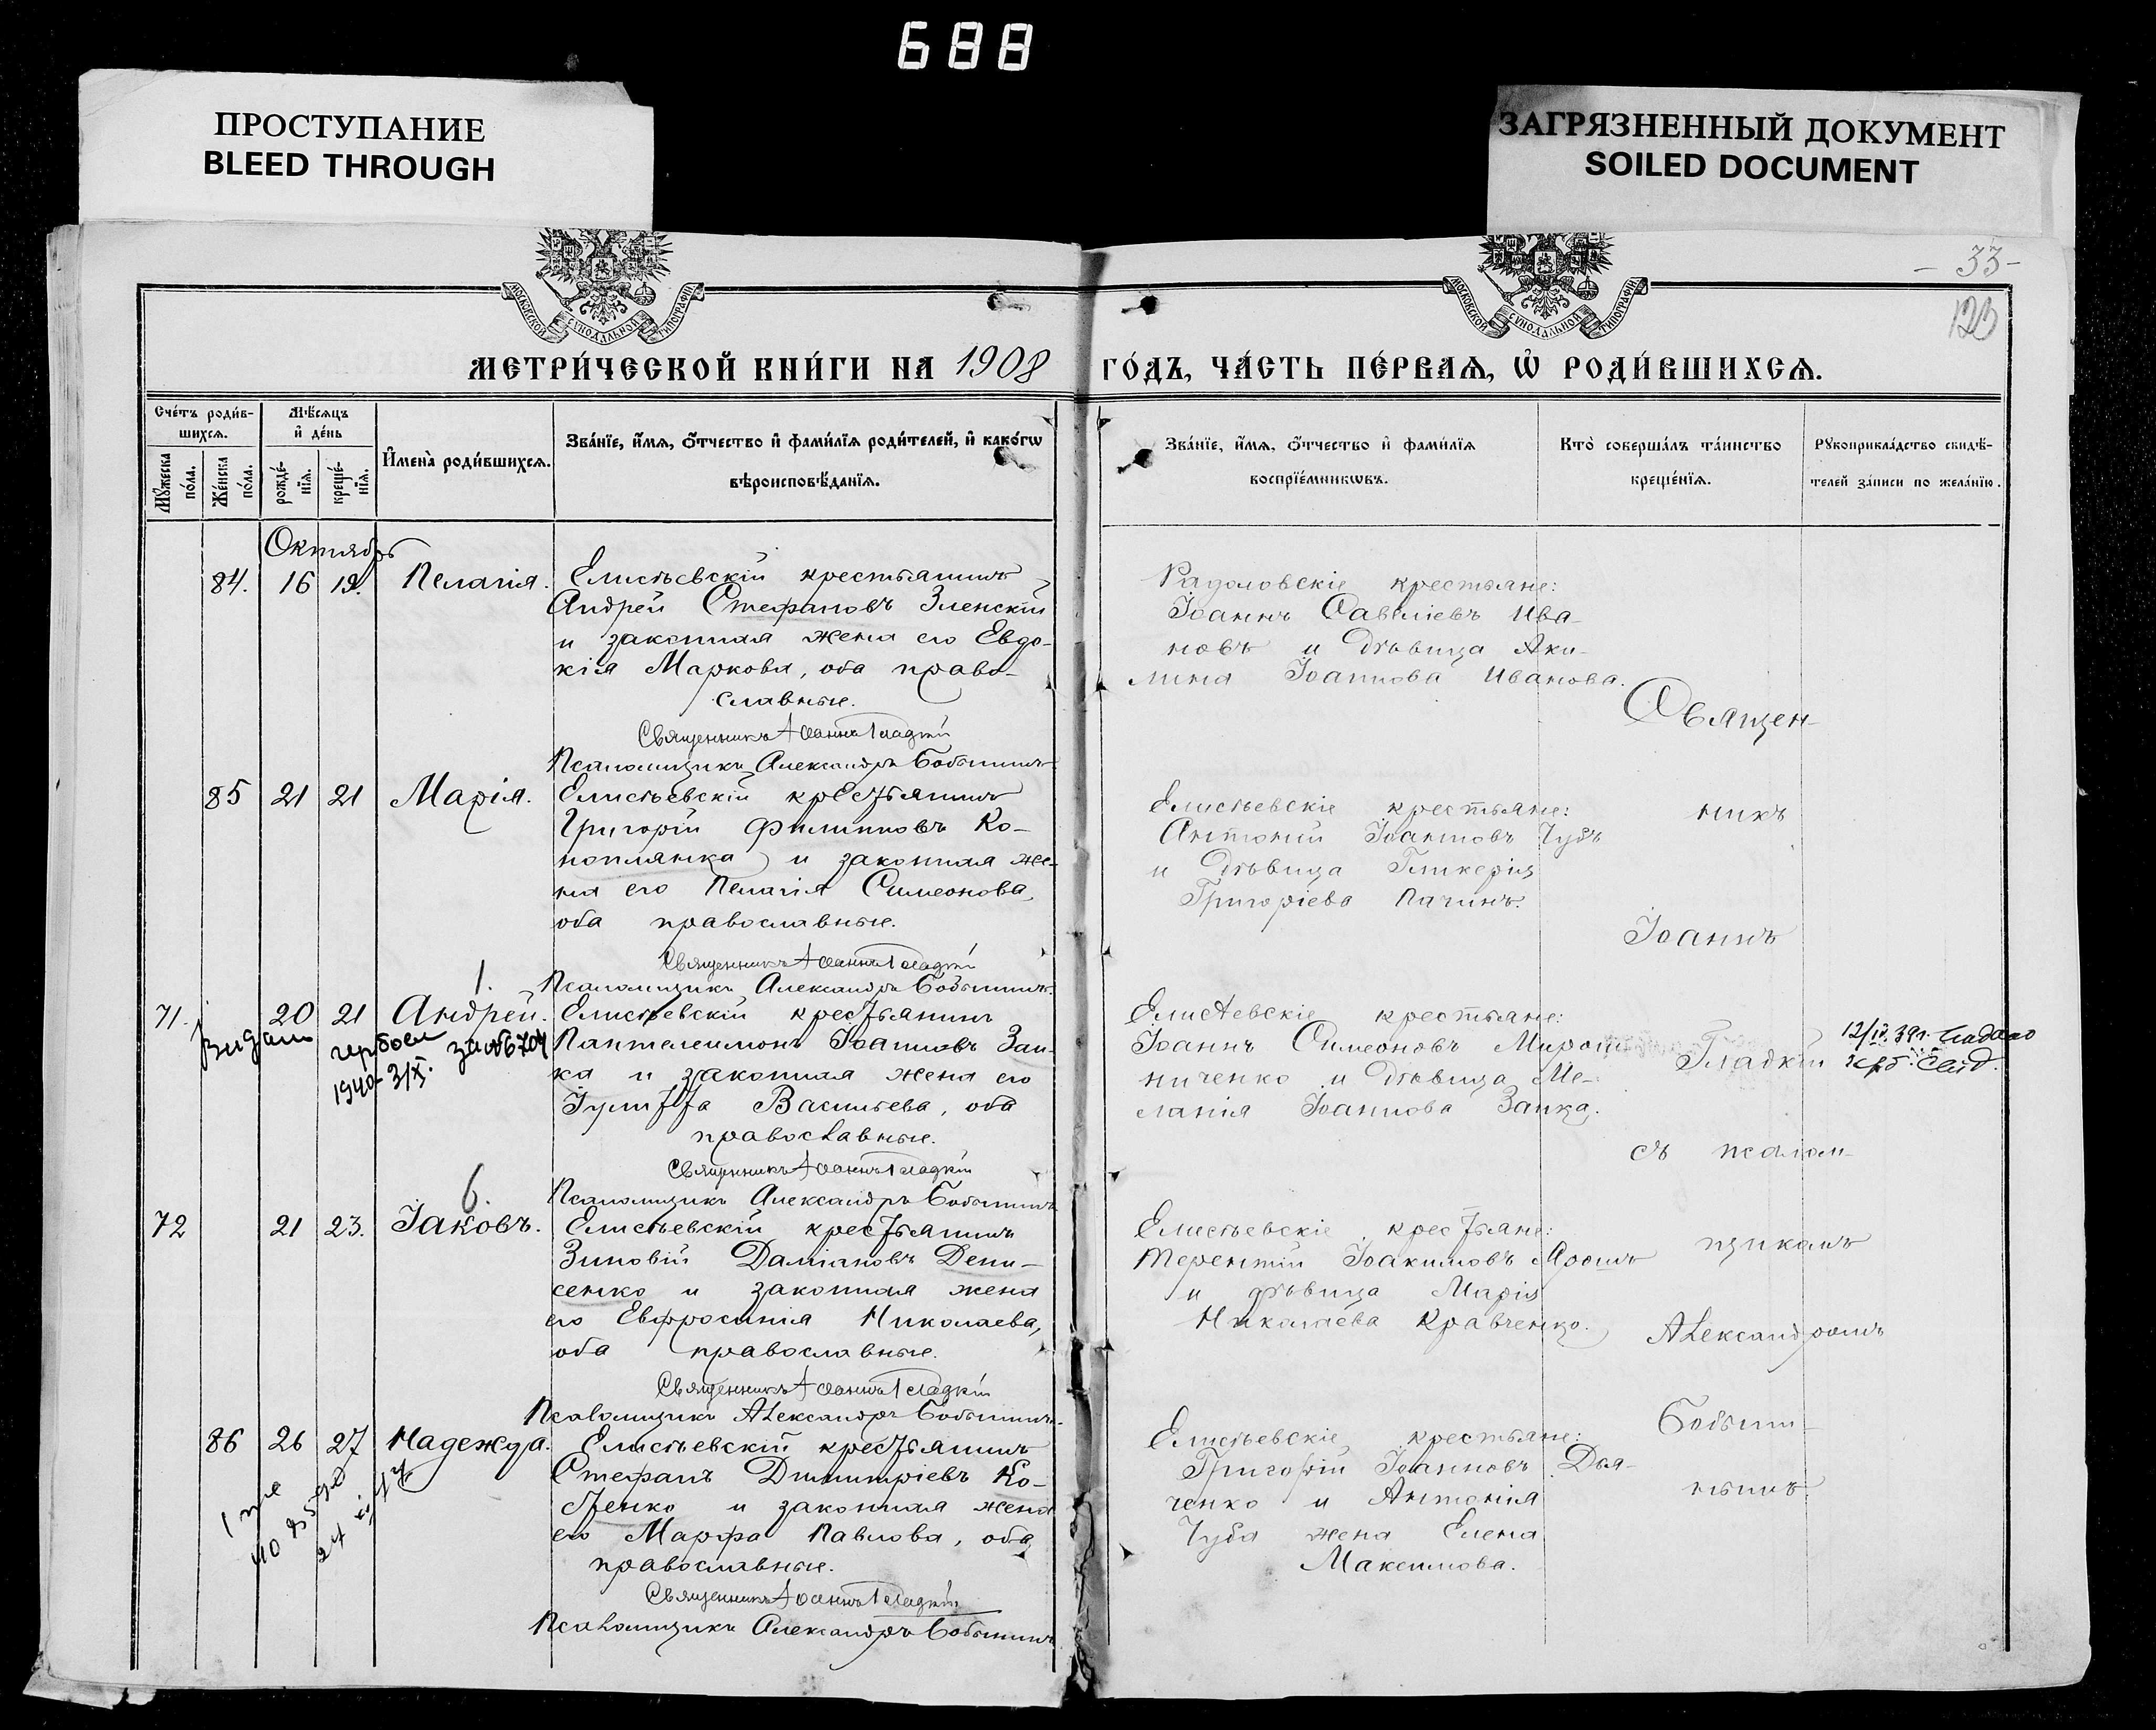 688
ПРОСТУПАНИЕ
BLEED THROUGH
ЗАГРЯЗНЕННЫЙ ДОКУМЕНТ
SOILED DOCUMENT
МОСКОВСКОЙ СѴНОДАЛЬНОЙ ТИПОГРАФІИ
МОСКОВСКОЙ СѴНОДАЛЬНОЙ ТИПОГРАФІИ
- 33 -
123
МЕТРИ́ЧЕСКОЙ КНИ́ГИ НА 1908 ГО́ДЪ, ЧА́СТЬ ПЕ́РВАѦ, Ѡ҆ РОДИ́ВШИХСѦ.
Сче́тъ роди́в-
шихсѧ.
Мꙋ́жеска по́ла.
Же́нска по́ла.
Мѣ́сѧцъ и҆ де́нь
рожде́-нїѧ.
креще́-нїѧ.
И҆мена̀ роди́вшихсѧ.
Зва́нїе, и҆́мѧ, ѻ҆́тчество и҆ фами́лїѧ роди́телей, и҆ како́гѡ
вѣроисповѣ́данїѧ.
Зва́нїе, и҆́мѧ, ѻ҆́тчество и҆ фами́лїѧ
воспрїе́мникѡвъ.
Кто̀ соверша́лъ та́инство
креще́нїѧ.
Рꙋкоприкла́дство свидѣ́-
телей за́писи по жела́нїю.
Октябрь
84. 16 19. Пелагія. Елисѣевскій крестьянинъ
Андрей Стефановъ Зленскій
и законная жена его Евдо-
кія Маркова, оба право-
славные.
Священникъ Іоаннъ Гладкій
Псаломщикъ Александръ Бобынинъ
Радоловскіе крестьяне:
Іоаннъ Савеліевъ Ива-
новъ и дѣвица Аки-
лина Іоаннова Иванова.
Священ-
85 21 21 Марія. Елисѣевскій крестьянинъ
Григорій Филипповъ Ко-
ноплянка и законная же-
на его Пелагія Симеонова,
оба православные.
Священникъ Іоаннъ Гладкій
Псаломщикъ Александръ Бобынинъ.
Елисѣевскіе крестьяне:
Антоній Іоанновъ Чубъ
и дѣвица Гликерія
Григоріева Пачинъ.
никъ
Іоаннъ
1.
71. 20 21 Андрей. Елисѣевскій крестьянинъ
Пантелеимонъ Іоанновъ Заи-
ка и законная жена его
Іулитта Васильева, оба
православные.
Священникъ Іоаннъ Гладкій
Псаломщикъ Александръ Бобынинъ
гербов. за №6704
1940 - 3/X.
Елисѣевскіе крестьяне:
Іоаннъ Симеоновъ Мирош-
ниченко и дѣвица Ме-
ланія Іоаннова Заика.
Гладкій
12/IV. 39 г. выдано
герб. свид.
съ псалом-
6.
72 21 23. Іаковъ. Елисѣевскій крестьянинъ
Зиновій Даміановъ Дени-
сенко и законная жена
его Евфросинія Николаева,
оба православные.
Священникъ Іоаннъ Гладкій
Псаломщикъ Александръ Бобынинъ.
Елисѣевскіе крестьяне:
Терентій Іоакимовъ Ярошъ
и дѣвица Марія
Николаева Кравченко.
щикомъ
Александромъ
86 26 27 Надежда. Елисѣевскій крестьянинъ
Стефанъ Димитріевъ Ко-
стенко и законная жена
его Марфа Павлова, оба
православные.
Священникъ Іоаннъ Гладкій
Псаломщикъ Александръ Бобынинъ
Елисѣевскіе крестьяне:
Григорій Іоанновъ Дья-
ченко и Антонія
Чуба жена Елена
Максимова.
Бобыни-
нымъ.